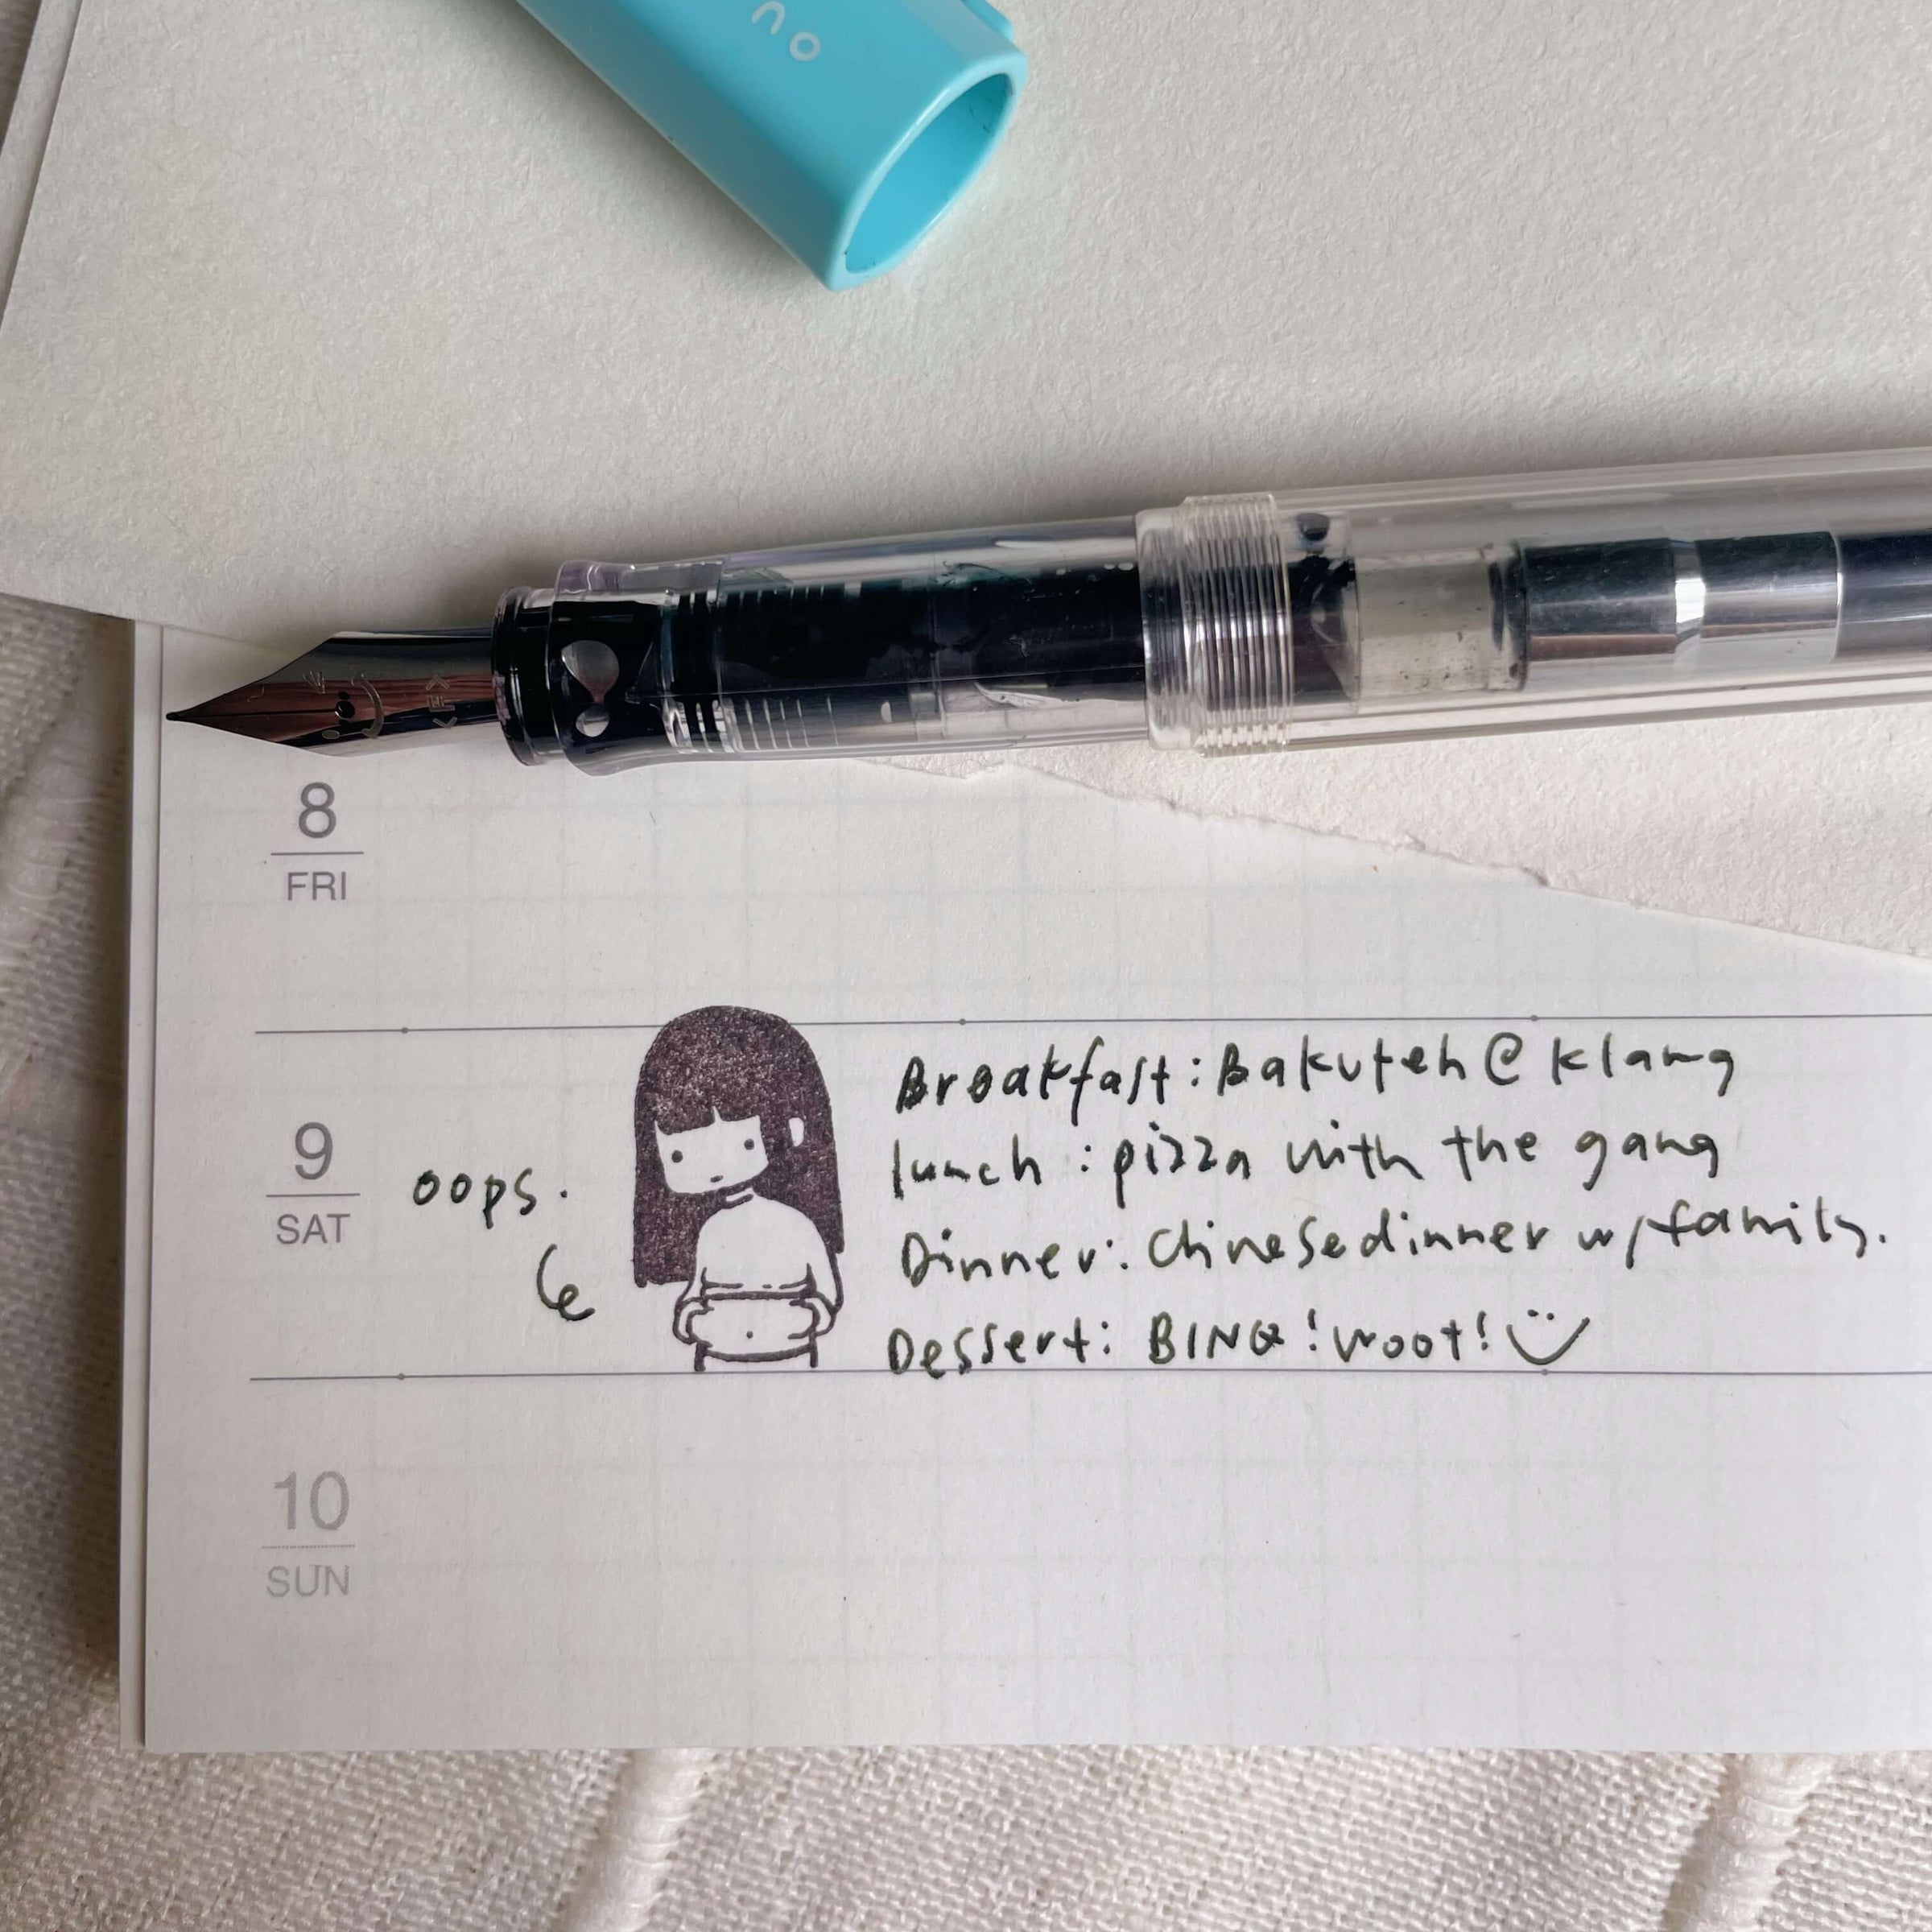 no
<EF>
8
FRI
9
SAT
oops.
Breakfast: Bakuteh @ klang
lunch : pizza with the gang
Dinner: Chinese dinner w/ family.
Dessert: BING! woot!
10
SUN